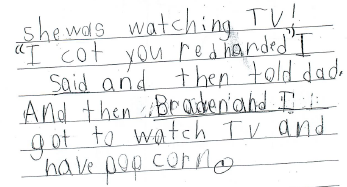 she was watching TV!
"I cot you redhanded" I
said and then told dad.
And then Braden and I
got to watch TV and
have pop corn.